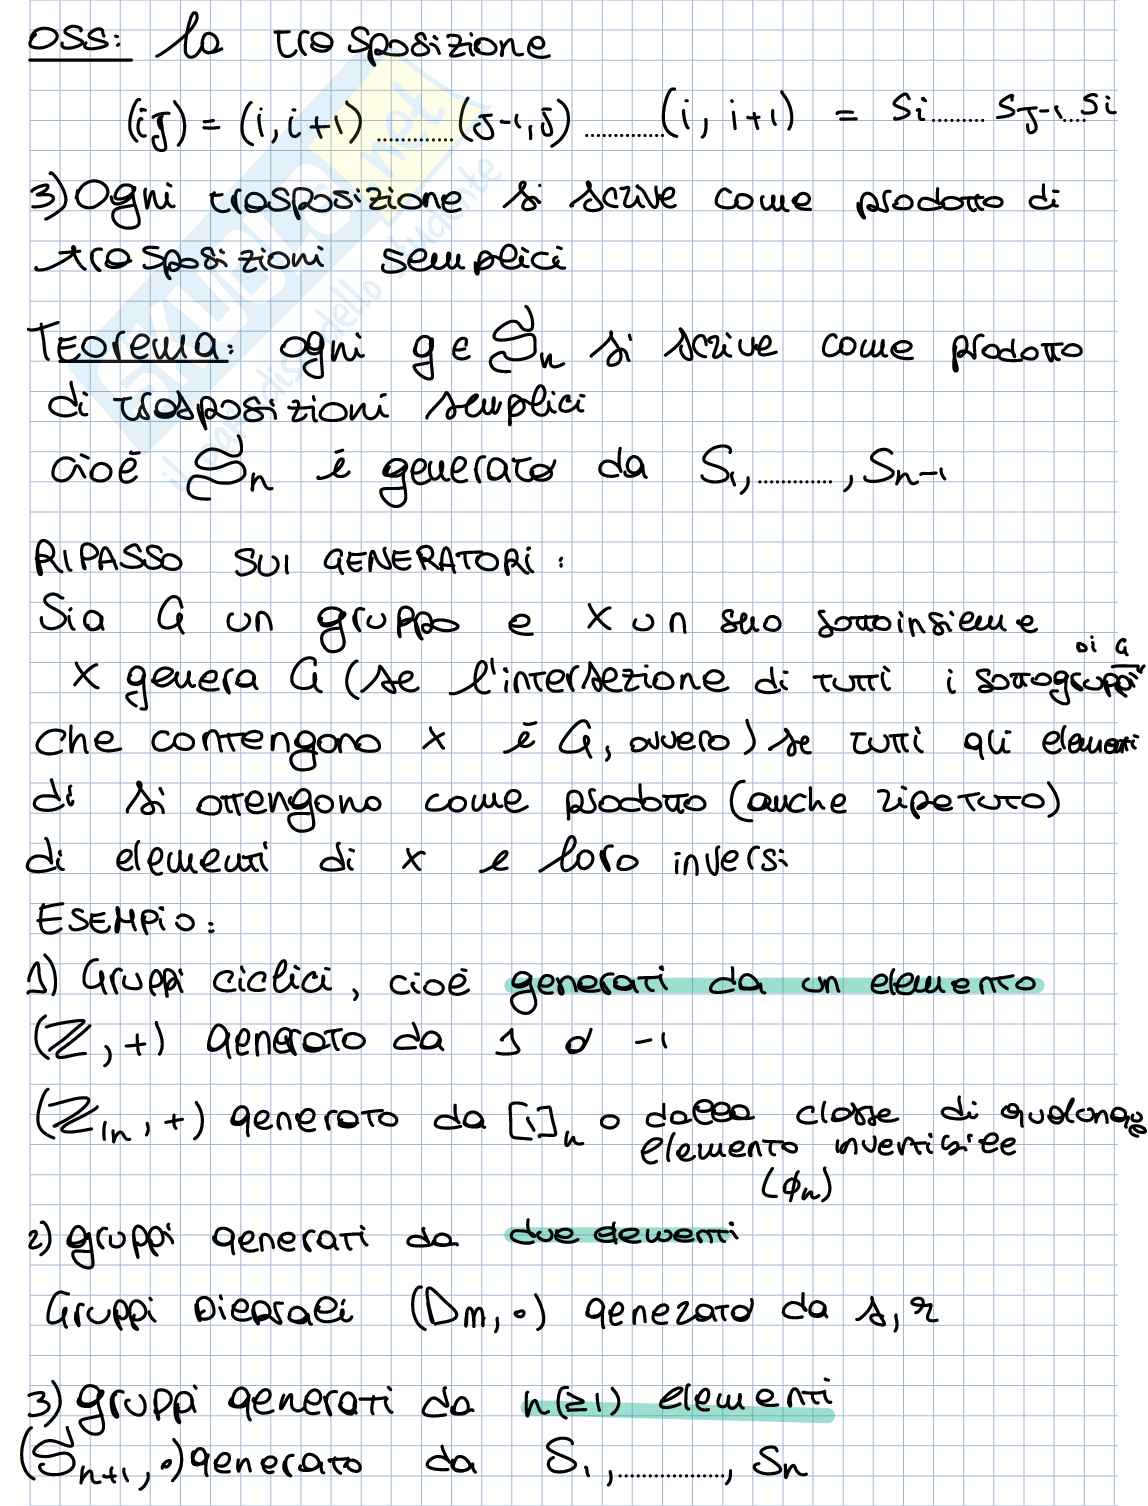 OSS: la trasposizione
(ij) = (i, i+1) ........... (j-1, j) ............. (i, i+1) = Si ........ Sj-1 .... Si
3) Ogni trasposizione si scrive come prodotto di
trasposizioni semplici
Teorema: ogni g ∈ Sn si scrive come prodotto
di trasposizioni semplici
cioè Sn è generato da S1, ............ , Sn-1
RIPASSO SUI GENERATORI :
Sia G un gruppo e X un suo sottoinsieme
X genera G (se l'intersezione di tutti i sottogruppi di G
che contengono X è G, ovvero) se tutti gli elementi
di si ottengono come prodotto (anche ripetuto)
di elementi di X e loro inversi
ESEMPIO:
1) Gruppi ciclici, cioè generati da un elemento
(ℤ, +) generato da 1 o -1
(ℤ/n, +) generato da [1]n o dalla classe di qualunque
elemento invertibile
(ϕn)
2) gruppi generati da due elementi
Gruppi Diedrali (Dm, ∘) generato da s, r
3) gruppi generati da n(≥1) elementi
(Sn+1, ∘) generato da S1, ................., Sn
SKUOLA.net
il paradiso dello studente